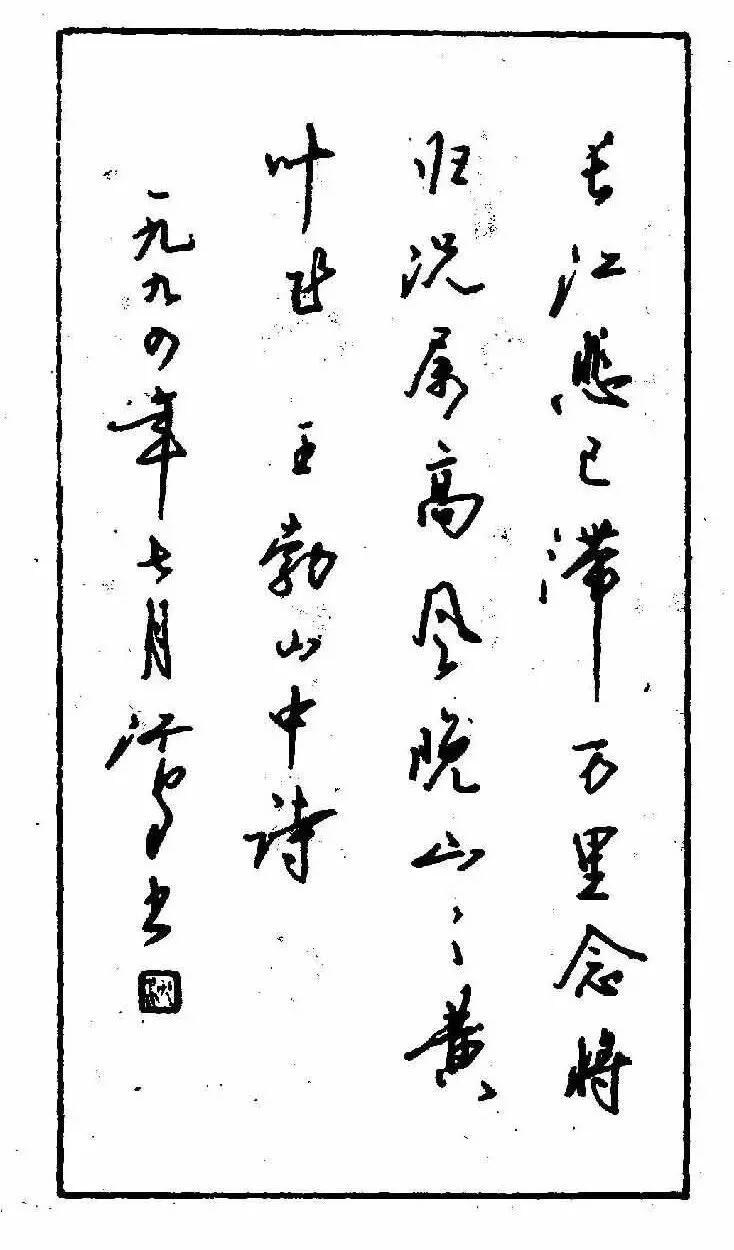 长江悲已滞万里念将
归况属高风晚山々黄
叶飞 王勃山中诗
一九九四年七月江书